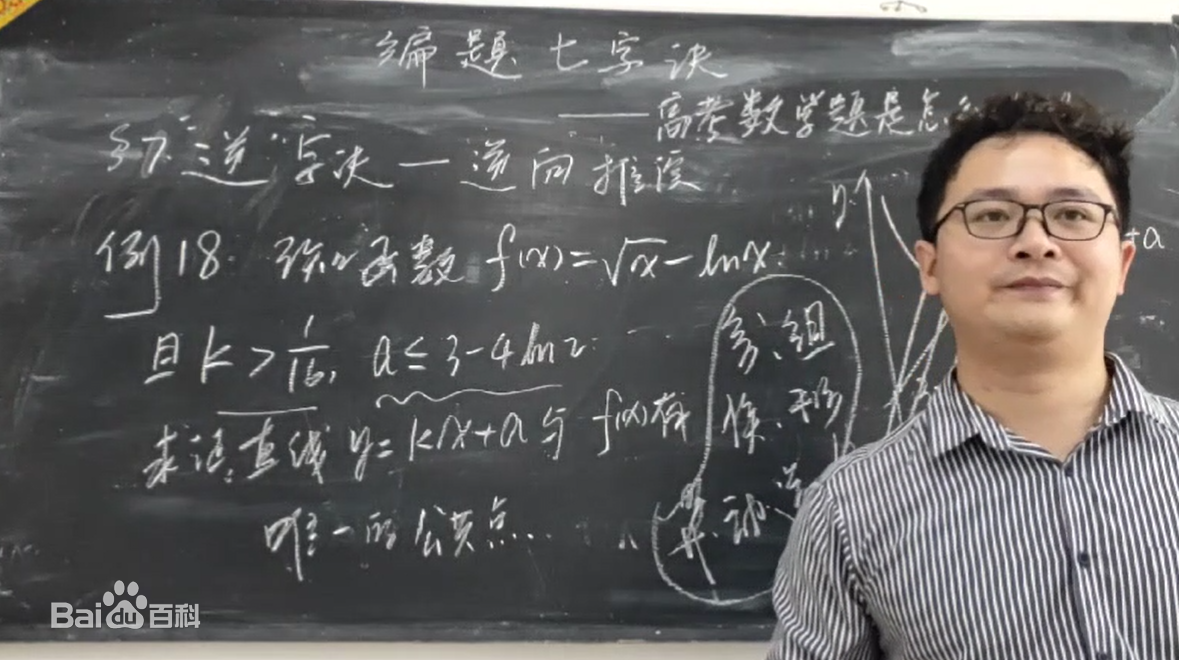 编题七字诀
——高考数学题是怎
§7."逆"字诀—逆向推演
例18. 已知函数 f(x)=√x-lnx.
且 k>1/16, a≤3-4ln2.
求证:直线 y=kx+a与 f(x)有
唯一的公共点...
y
+a
组
逆
Bai du 百科